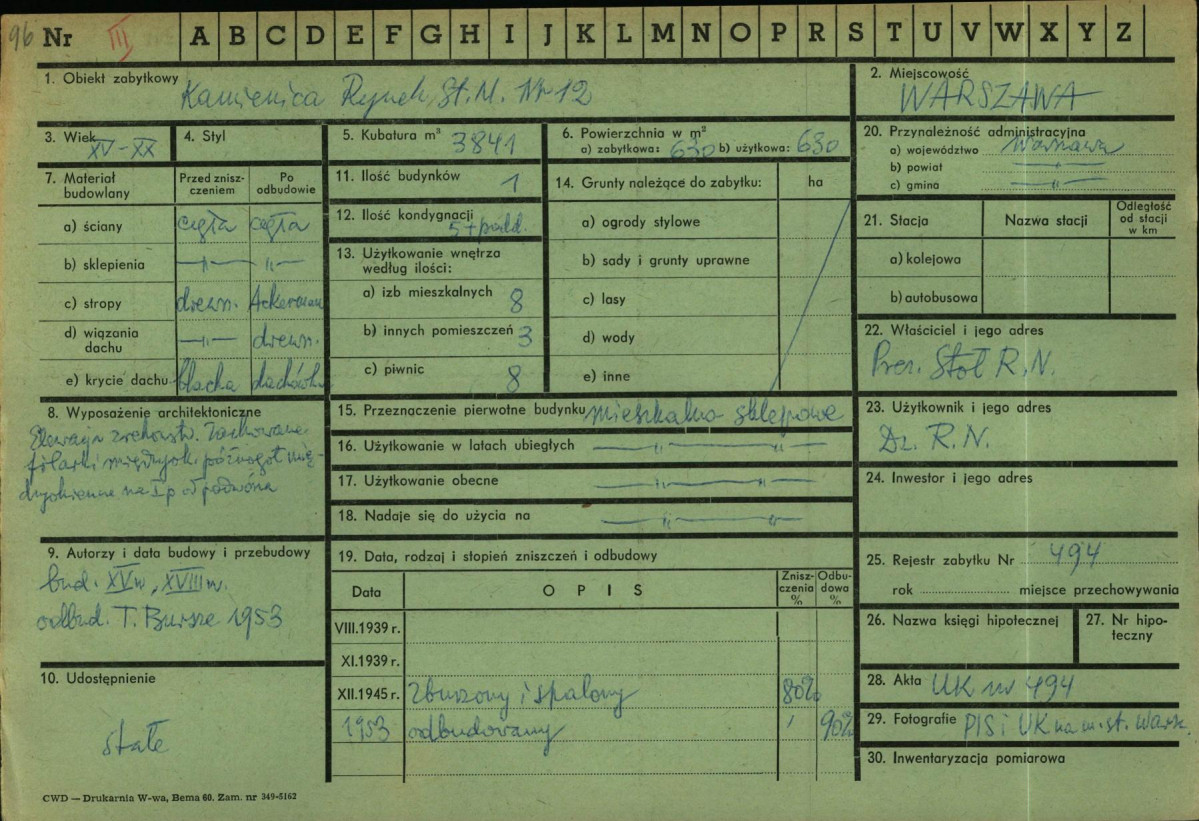 96 Nr III A B C D E F G H I J K L M N O P R S T U V W X Y Z
1. Obiekt zabytkowy Kamienica Rynek St. M. Nr 12
2. Miejscowość
WARSZAWA
3. Wiek
XV-XX
4. Styl
5. Kubatura m³ 3841
6. Powierzchnia w m²
a) zabytkowa: 630 b) użytkowa: 630
20. Przynależność administracyjna
a) województwo Warszawa
b) powiat —"—
c) gmina —"—
7. Materiał budowlany
Przed zniszczeniem
Po odbudowie
a) ściany cegła cegła
b) sklepienia —"— "—
c) stropy drewn. Ackerman
d) wiązania dachu —"— drewn.
e) krycie dachu blacha dachówk
11. Ilość budynków 1
12. Ilość kondygnacji
5+podd.
13. Użytkowanie wnętrza
według ilości:
a) izb mieszkalnych 8
b) innych pomieszczeń 3
c) piwnic 8
14. Grunty należące do zabytku: ha
a) ogrody stylowe
b) sady i grunty uprawne
c) lasy
d) wody
e) inne
21. Stacja Nazwa stacji Odległość od stacji w km
a) kolejowa
b) autobusowa
22. Właściciel i jego adres
Prez. Stoł R.N.
8. Wyposażenie architektoniczne
Elewacja zrekonstr. Zachowane
filarki międzyok. późnogot. mię-
dzyokienne na I p od podwórza
15. Przeznaczenie pierwotne budynku mieszkalno sklepowe
16. Użytkowanie w latach ubiegłych —"— "—
17. Użytkowanie obecne —"— "—
18. Nadaje się do użycia na —"— "—
23. Użytkownik i jego adres
Dz. R.N.
24. Inwestor i jego adres
9. Autorzy i data budowy i przebudowy
bud. XV w, XVIII w.
odbud. T. Bursze 1953
19. Data, rodzaj i stopień zniszczeń i odbudowy
Data OPIS Zniszczenia % Odbudowa %
VIII.1939 r.
XI.1939 r.
XII.1945 r. Zburzony i spalony 80%
1953 odbudowany 90%
25. Rejestr zabytku Nr 494
rok miejsce przechowywania
26. Nazwa księgi hipotecznej
27. Nr hipoteczny
10. Udostępnienie
stałe
28. Akta UK nr 494
29. Fotografie PIS i UK na m. st. Warsz.
30. Inwentaryzacja pomiarowa
CWD — Drukarnia W-wa, Bema 60. Zam. nr 349-5162